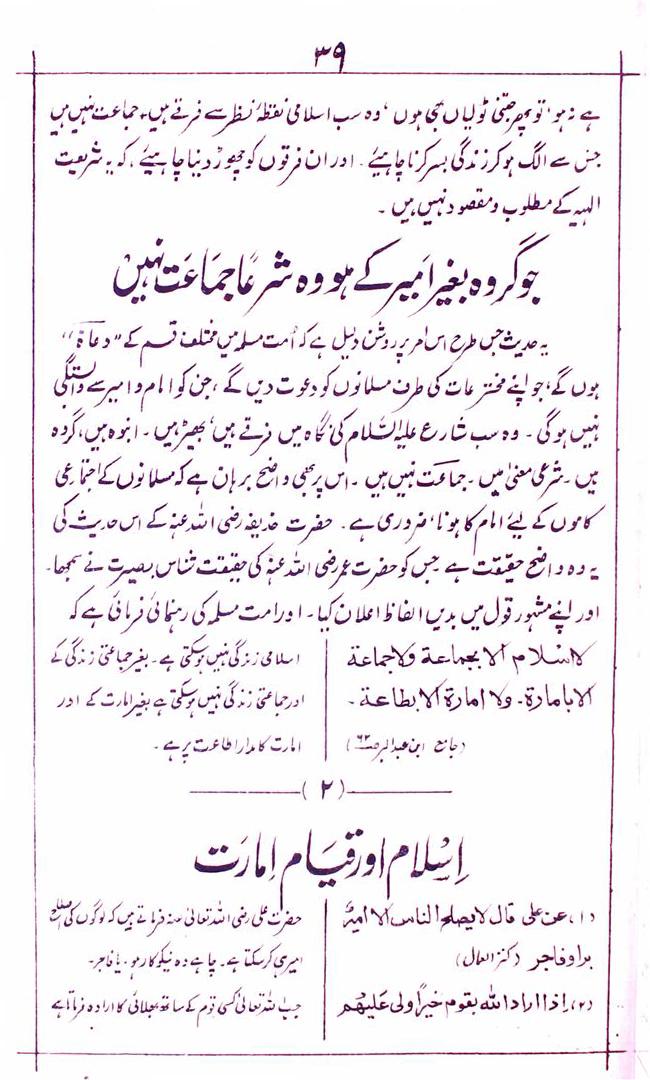 ۳۹
ہے نہ ہو، تو پھر جتنی ٹولیاں بھی ہوں، وہ سب اسلامی نقطۂ نظر سے فرقے ہیں۔ جماعت نہیں ہیں
جس سے الگ ہو کر زندگی بسر کرنا چاہیئے۔ اور ان فرقوں کو چھوڑ دینا چاہیئے، کہ یہ شریعت
الٰہیہ کے مطلوب و مقصود نہیں ہیں۔
جو گروہ بغیر امیر کے ہو وہ شرعاً جماعت نہیں
یہ حدیث جس طرح اس امر پر روشن دلیل ہے کہ اُمت مسلمہ میں مختلف قسم کے "دعاة"
ہوں گے، جو اپنے مخترعات کی طرف مسلمانوں کو دعوت دیں گے، جن کو امام و امیر سے وابستگی
نہیں ہوگی۔ وہ سب شارع علیہ السّلام کی نگاہ میں فرقے ہیں، بھیڑ ہیں۔ انبوہ ہیں، گروہ
ہیں۔ شرعی معنیٰ میں۔ جماعت نہیں ہیں۔ اس پر بھی واضح برہان ہے کہ مسلمانوں کے اجتماعی
کاموں کے لیئے امام کا ہونا، ضروری ہے۔ حضرت حذیفہ رضی اللہ عنہ کے اس حدیث کی
یہ وہ واضح حقیقت ہے جس کو حضرت عمر رضی اللہ عنہ کی حقیقت شناس بصیرت نے سمجھا۔
اور اپنے مشہور قول میں بدیں الفاظ اعلان کیا۔ اور امت مسلمہ کی رہنمائی فرمائی ہے کہ
لا اسلام الا بجماعة ولا جماعة
الا بامارة۔ ولا امارة الا بطاعة۔
(جامع ابن عبدالبر صـ ۶۲)
اسلامی زندگی نہیں ہو سکتی ہے۔ بغیر جماعتی زندگی کے
اور جماعتی زندگی نہیں ہو سکتی ہے بغیر امارت کے اور
امارت کا مدار اطاعت پر ہے۔
(۲)
اسلام اور قیام امارت
(۱) عن علی قال لا یصلح الناس الا امیرٌ
بر او فاجر (کنز العمال)
(۲) اذا اراد الله بقوم خیراً ولی علیهم
حضرت علی رضی اللہ تعالیٰ عنہ فرماتے ہیں کہ لوگوں کی اصلاح
امیر ہی کر سکتا ہے۔ چاہے وہ نیکوکار ہو، یا فاجر۔
جب اللہ تعالیٰ کسی قوم کے ساتھ بھلائی کا ارادہ فرماتا ہے